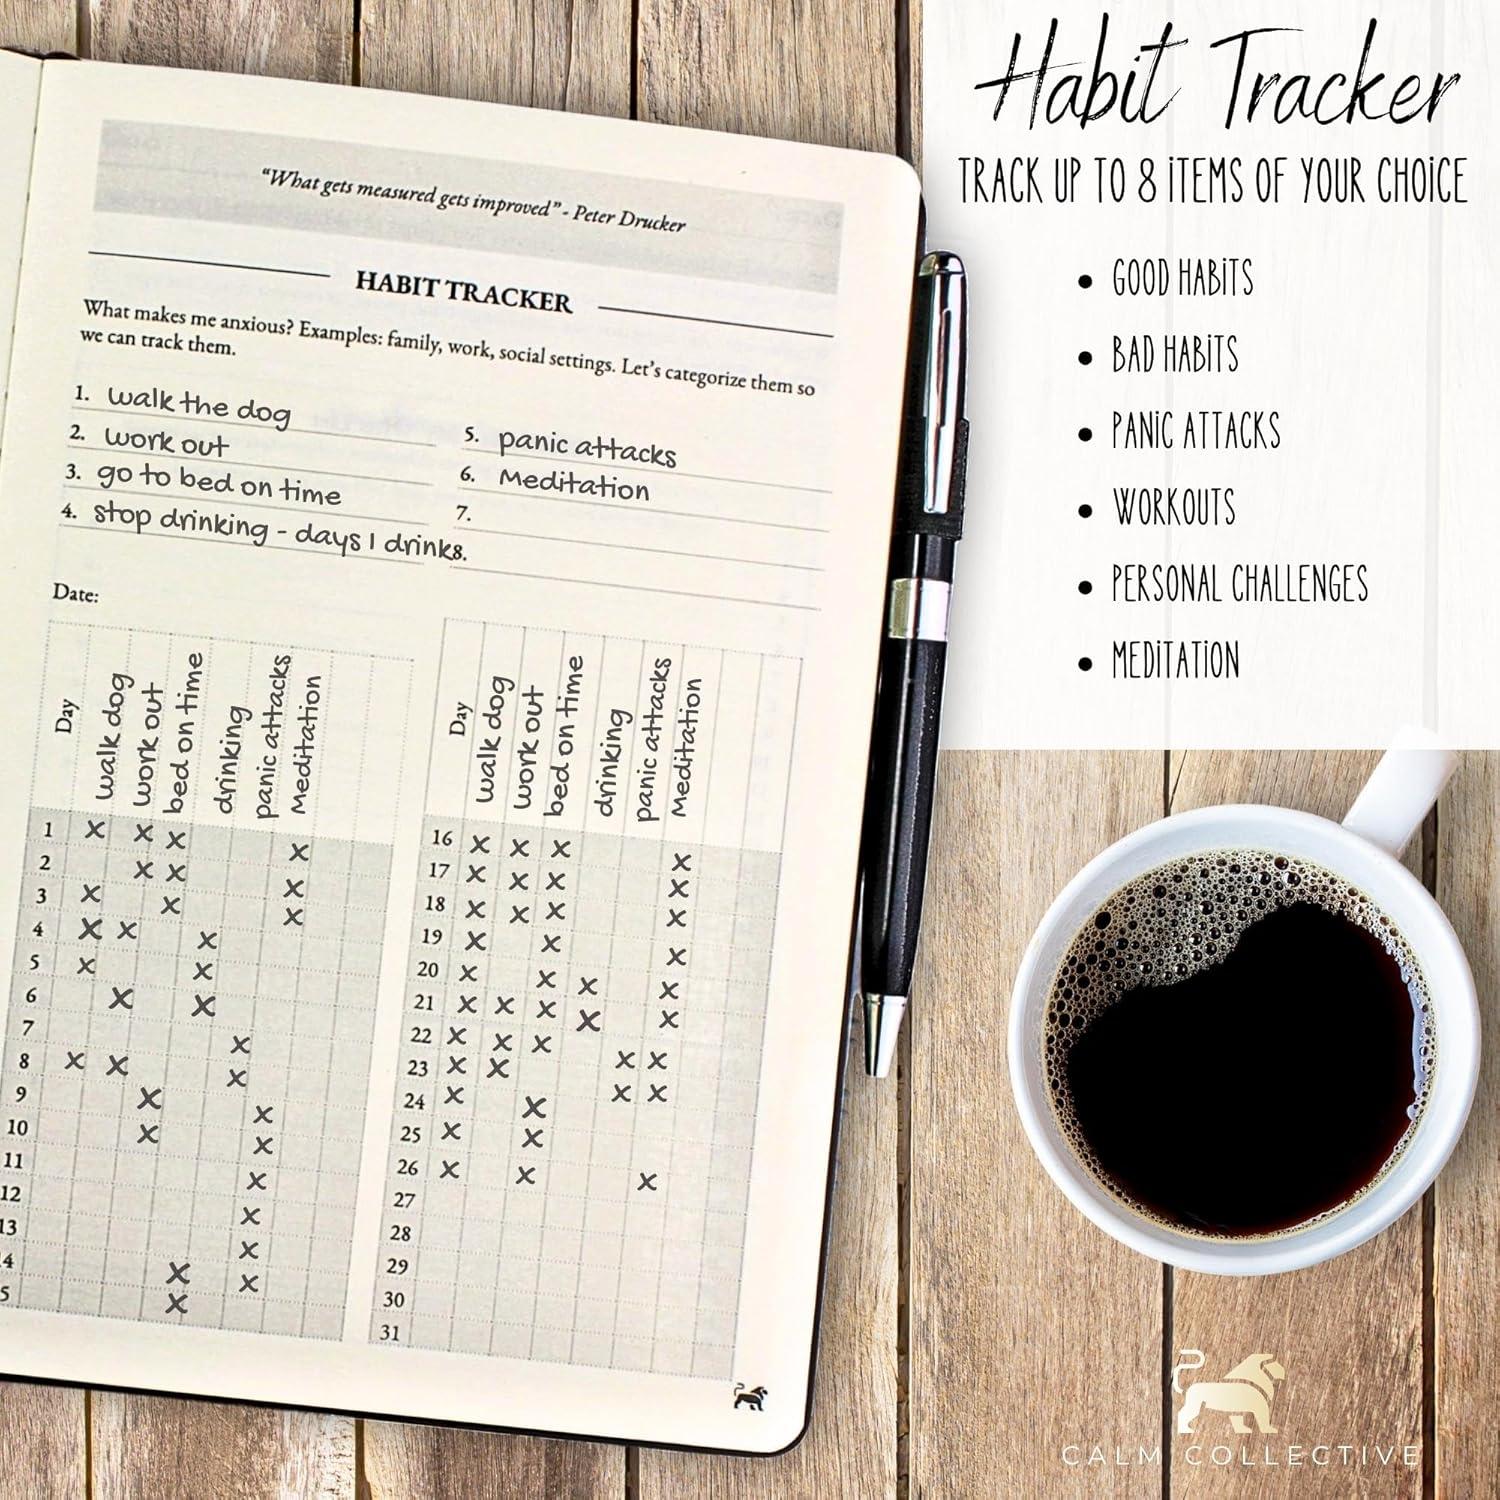 Habit Tracker
TRACK UP TO 8 ITEMS OF YOUR CHOICE
• GOOD HABITS
• BAD HABITS
• PANIC ATTACKS
• WORKOUTS
• PERSONAL CHALLENGES
• MEDITATION
"What gets measured gets improved" - Peter Drucker
HABIT TRACKER
What makes me anxious? Examples: family, work, social settings. Let's categorize them so
we can track them.
1. walk the dog
2. work out
3. go to bed on time
4. stop drinking - days I drink
5. panic attacks
6. Meditation
7.
8.
Date:
Day walk dog work out bed on time drinking panic attacks Meditation
1 x x x x
2 x x x
3 x x x
4 x x x
5 x x
6 x x
7 x
8 x x x
9 x x
10 x x
11 x
12 x
13 x
4 x x
5 x
Day walk dog work out bed on time drinking panic attacks Meditation
16 x x x x
17 x x x x
18 x x x x
19 x x x
20 x x x x
21 x x x x x
22 x x x x x
23 x x x x
24 x x
25 x x
26 x x x
27
28
29
30
31
CALM COLLECTIVE